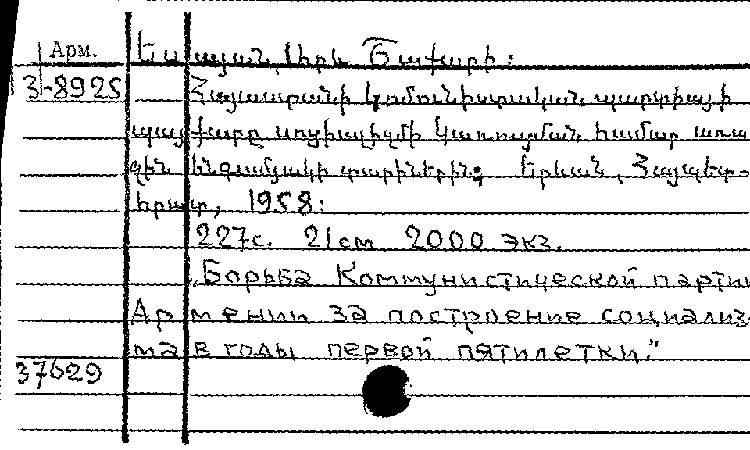 Արմ. Եսայան, Լիլի Ծատուրի:
3-8925 Հայաստանի կոմունիստական պարտիայի
պայքարը սոցիալիզմի կառուցման համար առա
ջին հնգամյակի տարիներին: Երևան, Հայպետ-
հրատ, 1958:
227с. 21см 2000 экз.
„Борьба Коммунистической партии
Армении за построение социализ-
ма в годы первой пятилетки."
37629